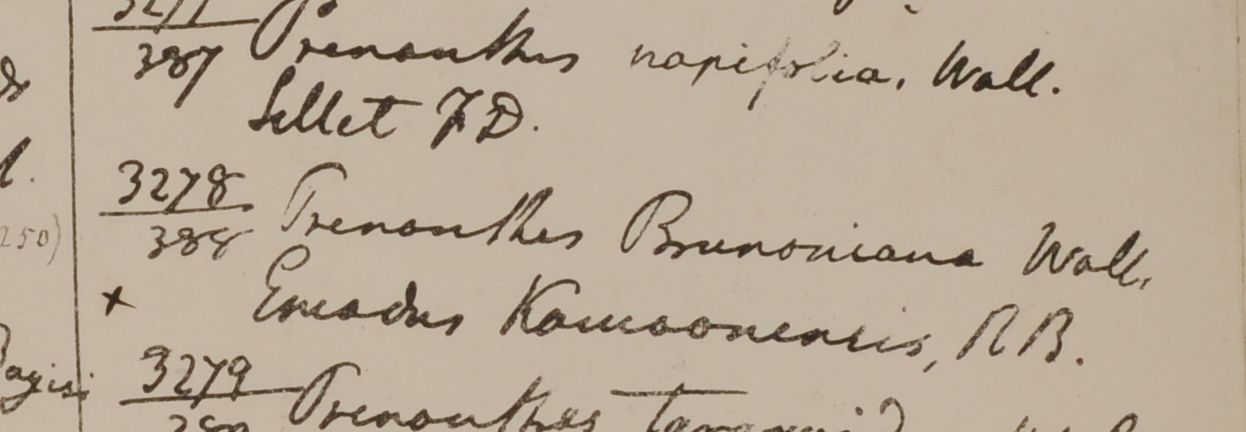 3277
387 Prenanthes napifolia, Wall.
Sillet F.D.
3278
388 Prenanthes Brunoniana Wall.
+ Emodus Kamaonensis, R B.
250)
3279
Prenanthes